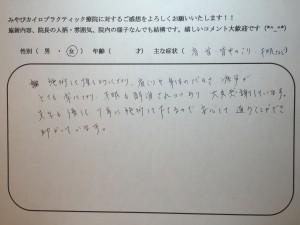 みやびカイロプラクティック療院に対するご感想をよろしくお願いいたします！！
施術内容、院長の人柄・雰囲気、院内の様子なんでも結構です。嬉しいコメント大歓迎です (*^_^*)
性別（ 男 ・ 女 ） 年齢（ 才） 主な症状（ 背中のこり、不眠など ）
とても楽になり、不眠も解消されつつあり 大変感謝しています。
先生も凄く 丁寧に 施術して下さるので 安心して 通うことができ
助かっています。